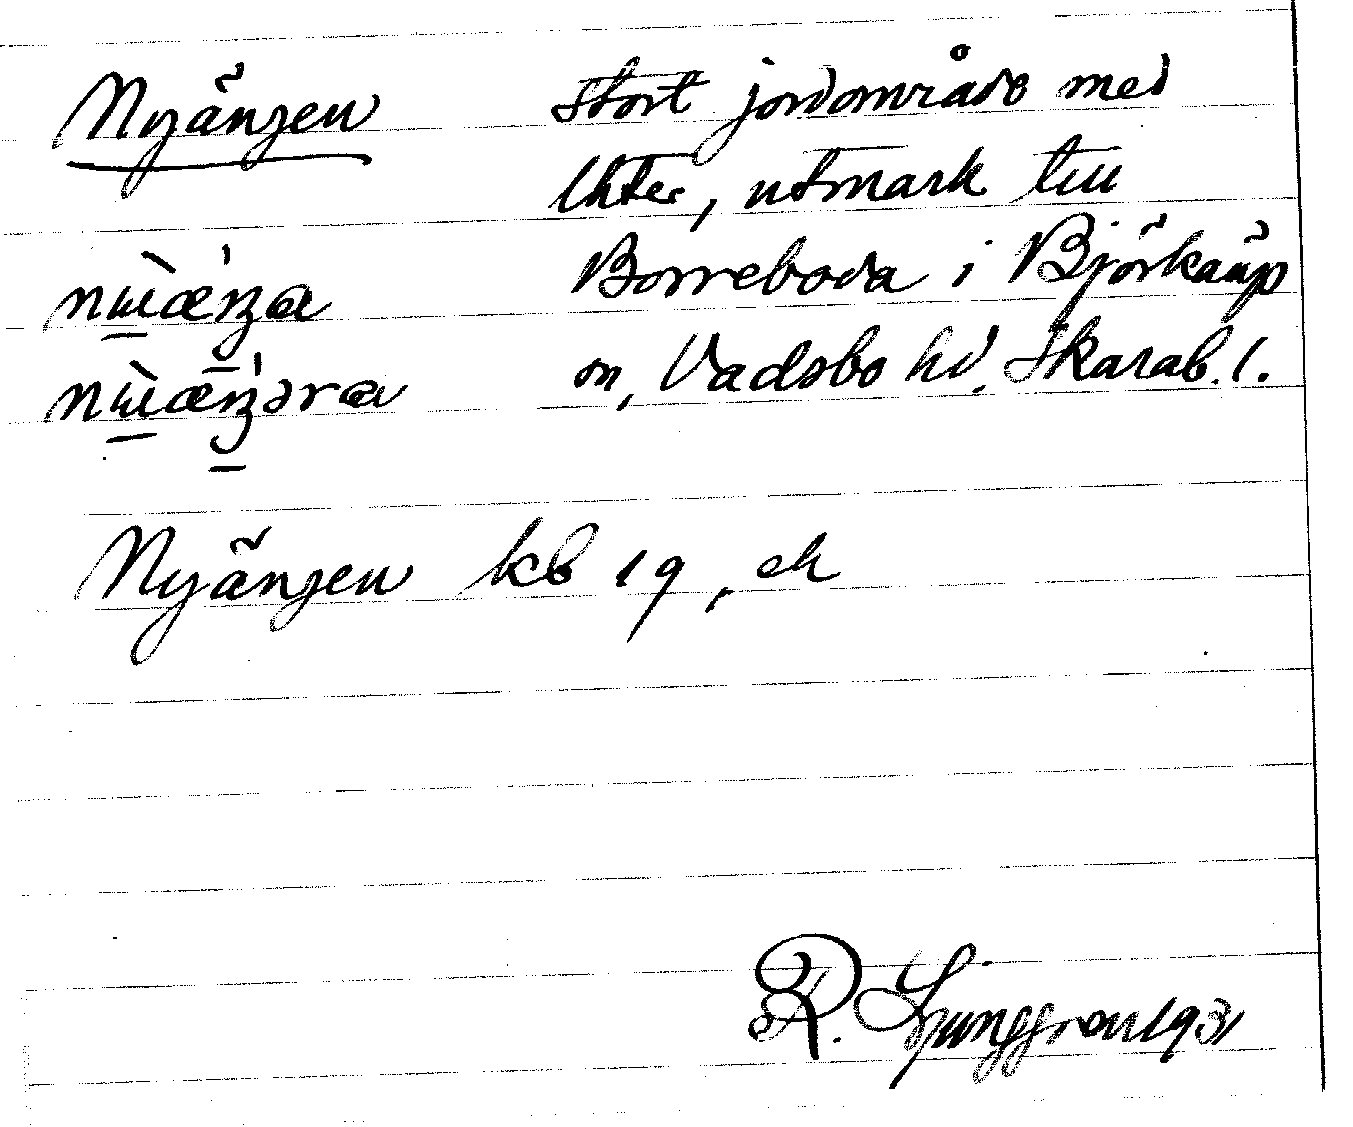 Nyängen stort jordområde med
lhter, utmark till
Borreboda i Björkäng
sn, Vadsbo hd. Skarab. l.
Nyängen kb 19, ek
R. Ljunggren 1931